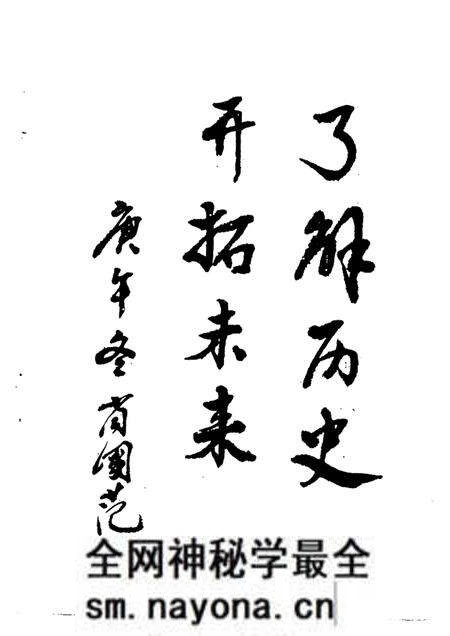 了解历史
开拓未来
庚午冬肖国范
全网神秘学最全
sm.nayona.cn